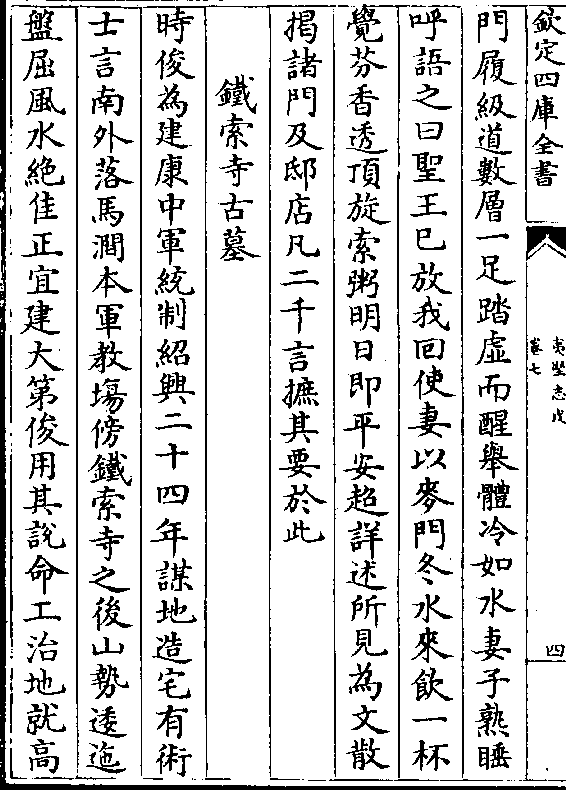 欽定四庫全書
夷堅志戊
卷七
四
門履級道數層一足踏虛而醒舉體冷如水妻子熟睡
呼語之曰聖王已放我回使妻以麥門冬水來飲一杯
覺芬香透頂旋索粥明日即平安超詳述所見為文散
揭諸門及邸店凡二千言摭其要於此
鐵索寺古墓
時俊為建康中軍統制紹興二十四年謀地造宅有術
士言南外落馬澗本軍教場傍鐵索寺之後山勢逶迤
盤屈風水絶佳正宜建大第俊用其說命工治地就高